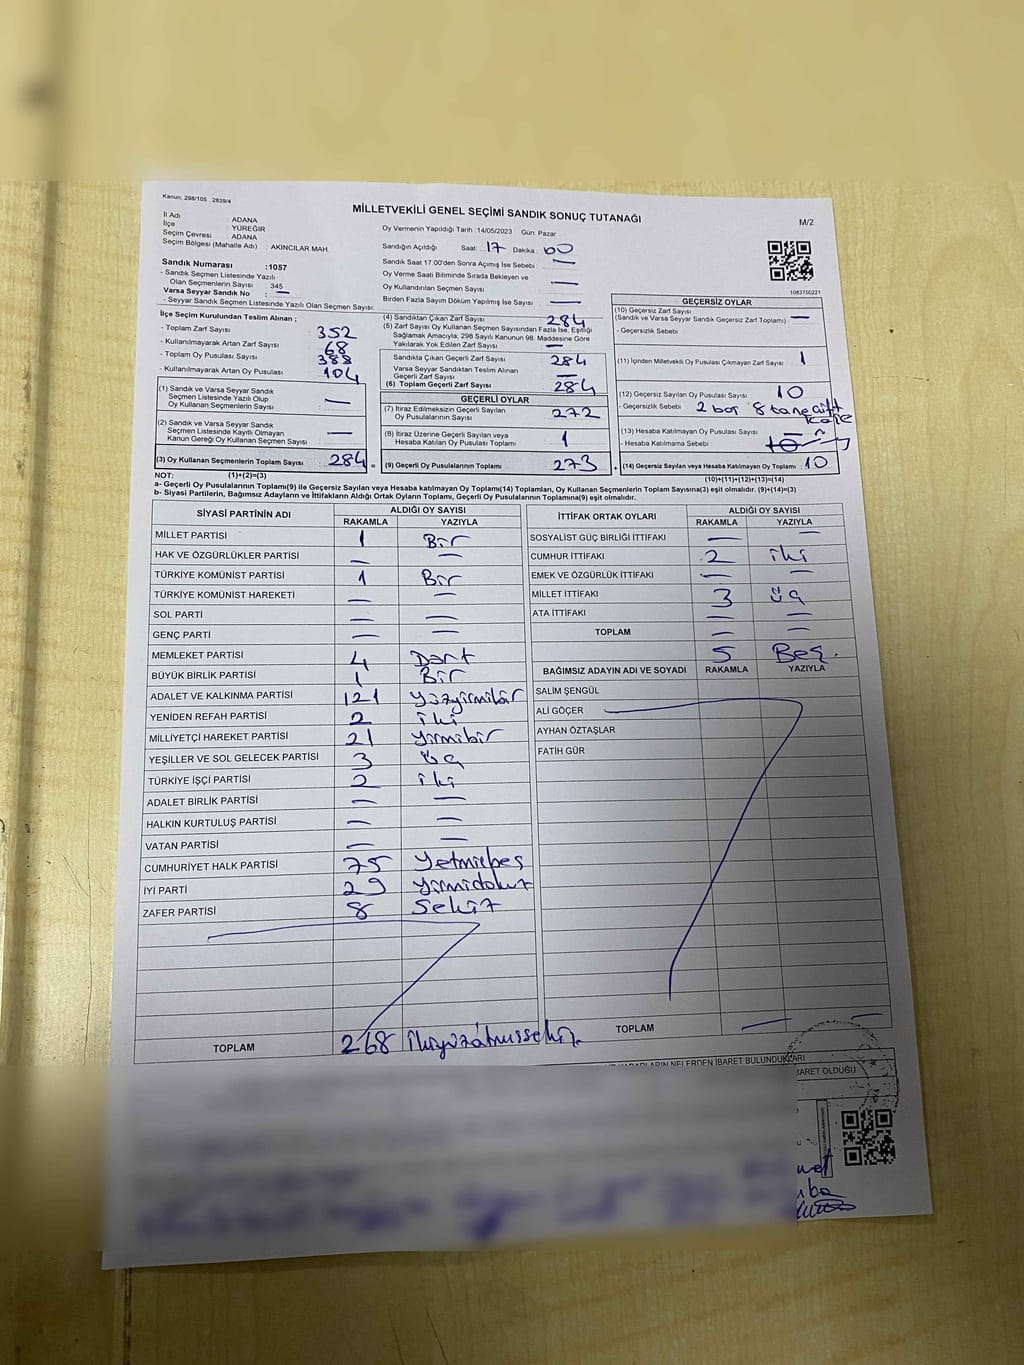 Kanun: 298/105 , 2839/4
MİLLETVEKİLİ GENEL SEÇİMİ SANDIK SONUÇ TUTANAĞI
M/2
İl Adı : ADANA
İlçe : YÜREĞİR
Seçim Çevresi : ADANA
Seçim Bölgesi (Mahalle Adı) : AKINCILAR MAH
Oy Vermenin Yapıldığı Tarih :14/05/2023 Gün: Pazar
Sandığın Açıldığı Saat: 17 Dakika: 00
Sandık Saat 17:00'den Sonra Açımış İse Sebebi : —
Oy Verme Saati Bitiminde Sırada Bekleyen ve
Oy Kullandırılan Seçmen Sayısı : —
Birden Fazla Sayım Döküm Yapılmış İse Sayısı : —
1083750221
Sandık Numarası :1057
- Sandık Seçmen Listesinde Yazılı
Olan Seçmenlerin Sayısı : 345
Varsa Seyyar Sandık No : —
- Seyyar Sandık Seçmen Listesinde Yazılı Olan Seçmen Sayısı:
İlçe Seçim Kurulundan Teslim Alınan ;
- Toplam Zarf Sayısı : 352
- Kullanılmayarak Artan Zarf Sayısı : 68
- Toplam Oy Pusulası Sayısı : 388
- Kullanılmayarak Artan Oy Pusulası : 104
(1) Sandık ve Varsa Seyyar Sandık
Seçmen Listesinde Yazılı Olup
Oy Kullanan Seçmenlerin Sayısı : —
(2) Sandık ve Varsa Seyyar Sandık
Seçmen Listesinde Kayıtlı Olmayan
Kanun Gereği Oy Kullanan Seçmen Sayısı : —
(3) Oy Kullanan Seçmenlerin Toplam Sayısı : 284
(4) Sandıktan Çıkan Zarf Sayısı : 284
(5) Zarf Sayısı Oy Kullanan Seçmen Sayısından Fazla İse, Eşitliği
Sağlamak Amacıyla, 298 Sayılı Kanunun 98. Maddesine Göre
Yakılarak Yok Edilen Zarf Sayısı : —
Sandıkta Çıkan Geçerli Zarf Sayısı : 284
Varsa Seyyar Sandıktan Teslim Alınan
Geçerli Zarf Sayısı : —
(6) Toplam Geçerli Zarf Sayısı : 284
GEÇERLİ OYLAR
(7) İtiraz Edilmeksizin Geçerli Sayılan
Oy Pusulalarının Sayısı : 272
(8) İtiraz Üzerine Geçerli Sayılan veya
Hesaba Katılan Oy Pusulası Toplamı : 1
= (9) Geçerli Oy Pusulalarının Toplamı : 273
GEÇERSİZ OYLAR
(10) Geçersiz Zarf Sayısı
(Sandık ve Varsa Seyyar Sandık Geçersiz Zarf Toplamı) : —
- Geçersizlik Sebebi :
(11) İçinden Milletvekili Oy Pusulası Çıkmayan Zarf Sayısı : 1
(12) Geçersiz Sayılan Oy Pusulası Sayısı : 10
- Geçersizlik Sebebi : 2 boş 8 tane çift
kaşe
(13) Hesaba Katılmayan Oy Pusulası Sayısı : —
- Hesaba Katılmama Sebebi :
+ (14) Geçersiz Sayılan veya Hesaba Katılmayan Oy Toplamı : 10
NOT: (1)+(2)=(3) (10)+(11)+(12)+(13)=(14)
a- Geçerli Oy Pusulalarının Toplamı(9) ile Geçersiz Sayılan veya Hesaba katılmayan Oy Toplamı(14) Toplamları, Oy Kullanan Seçmenlerin Toplam Sayısına(3) eşit olmalıdır. (9)+(14)=(3)
b- Siyasi Partilerin, Bağımsız Adayların ve İttifakların Aldığı Ortak Oyların Toplamı, Geçerli Oy Pusulalarının Toplamına(9) eşit olmalıdır.
SİYASİ PARTİNİN ADI ALDIĞI OY SAYISI
RAKAMLA YAZIYLA
MİLLET PARTİSİ 1 Bir
HAK VE ÖZGÜRLÜKLER PARTİSİ — —
TÜRKİYE KOMÜNİST PARTİSİ 1 Bir
TÜRKİYE KOMÜNİST HAREKETİ — —
SOL PARTİ — —
GENÇ PARTİ — —
MEMLEKET PARTİSİ 4 Dört
BÜYÜK BİRLİK PARTİSİ 1 Bir
ADALET VE KALKINMA PARTİSİ 121 yüzyirmibir
YENİDEN REFAH PARTİSİ 2 iki
MİLLİYETÇİ HAREKET PARTİSİ 21 yirmibir
YEŞİLLER VE SOL GELECEK PARTİSİ 3 üç
TÜRKİYE İŞÇİ PARTİSİ 2 iki
ADALET BİRLİK PARTİSİ — —
HALKIN KURTULUŞ PARTİSİ — —
VATAN PARTİSİ — —
CUMHURİYET HALK PARTİSİ 75 Yetmişbeş
İYİ PARTİ 29 yirmidokuz
ZAFER PARTİSİ 8 Sekiz
TOPLAM 268 ikiyüzatmışsekiz
İTTİFAK ORTAK OYLARI ALDIĞI OY SAYISI
RAKAMLA YAZIYLA
SOSYALİST GÜÇ BİRLİĞİ İTTİFAKI — —
CUMHUR İTTİFAKI 2 iki
EMEK VE ÖZGÜRLÜK İTTİFAKI — —
MİLLET İTTİFAKI 3 üç
ATA İTTİFAKI — —
TOPLAM — —
5 Beş.
BAĞIMSIZ ADAYIN ADI VE SOYADI RAKAMLA YAZIYLA
SALİM ŞENGÜL
ALİ GÖÇER
AYHAN ÖZTAŞLAR
FATİH GÜR
TOPLAM — —
NELERDEN İBARET BULUNDUKLARI
BARET OLDUĞU